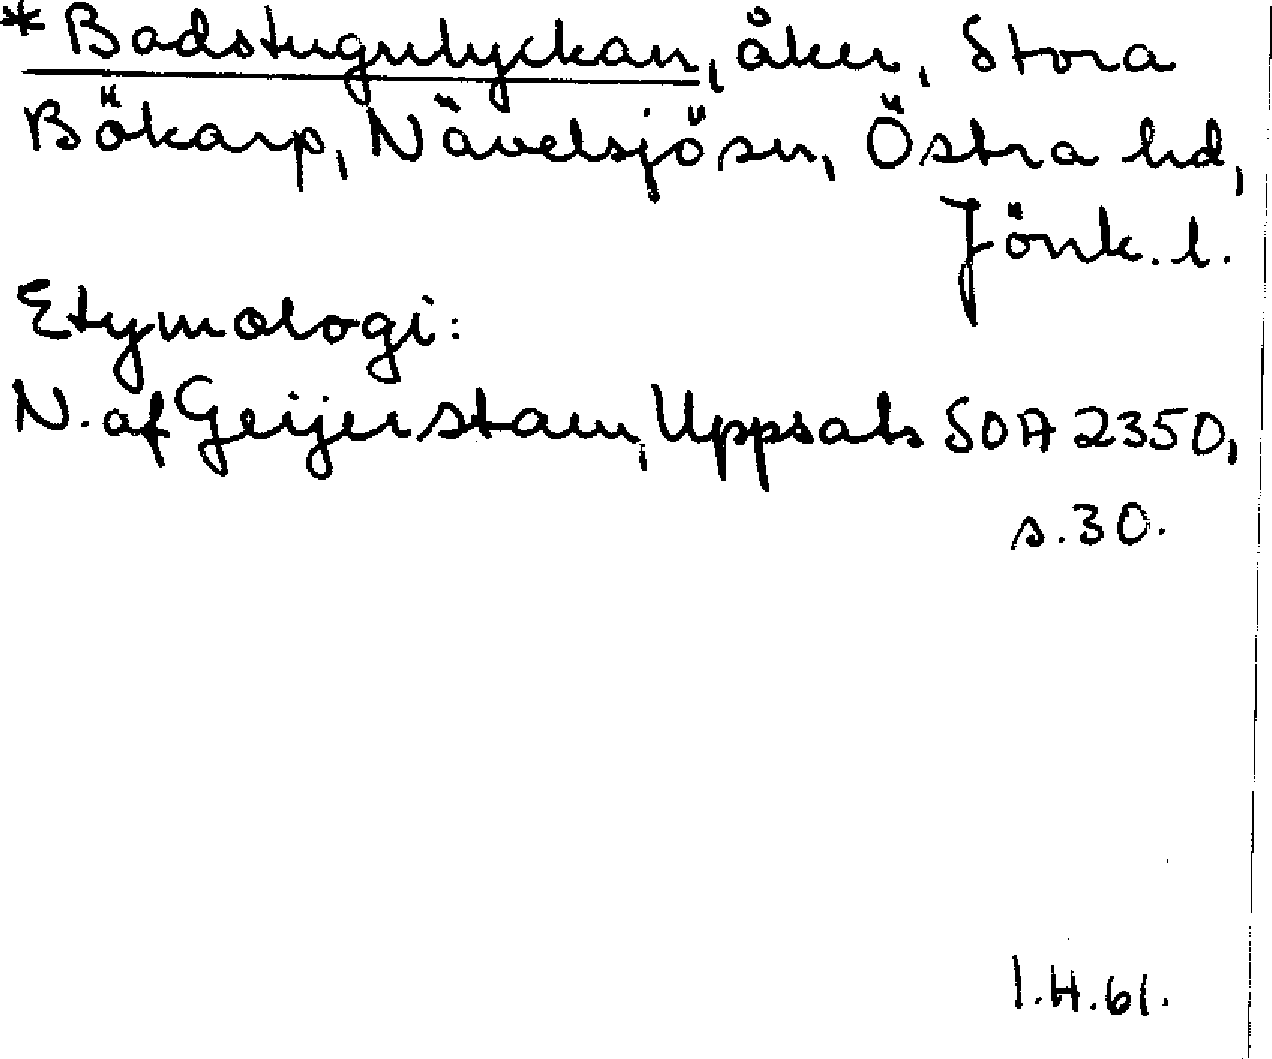 *Badstugulyckan, åker, Stora
Bökarp, Nävelsjö sn, Östra hd,
Jönk. l.
Etymologi:
N. af Geijerstam, Uppsats SOA 2350,
s. 30.
I.H.61.